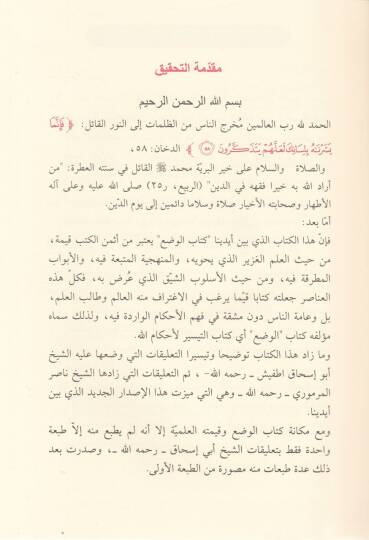 مقدمة التحقيق
بسم الله الرحمن الرحيم
الحمد لله رب العالمين مُخرج الناس من الظلمات إلى النور القائل: ﴿ فَإِنَّمَا
يَسَّرْنَهُ بِلِسَانِكَ لَعَلَّهُمْ يَتَذَكَّرُونَ ٥٨ ﴾ الدخان: ٥٨،
والصلاة والسلام على خير البريّة محمد ﷺ القائل في سنته العطرة: "من
أراد الله به خيرا فقهه في الدين" (الربيع، ر٢٥) صلى الله عليه وعلى آله
الأطهار وصحابته الأخيار صلاة وسلاما دائمين إلى يوم الدّين.
أمّا بعد:
فإنّ هذا الكتاب الذي بين أيدينا "كتاب الوضع" يعتبر من أثمن الكتب قيمة،
من حيث العلم الغزير الذي يحويه، والمنهجية المتبعة فيه، والأبواب
المطرقة فيه، ومن حيث الأسلوب الشيّق الذي عُرض به، فكلّ هذه
العناصر جعلته كتابا قيّما يرغب في الاغتراف منه العالم وطالب العلم،
بل وعامة الناس دون مشقة في فهم الأحكام الواردة فيه، ولذلك سماه
مؤلفه كتاب "الوضع" أي كتاب التيسير لأحكام الله.
وما زاد هذا الكتاب توضيحا وتيسيرا التعليقات التي وضعها عليه الشيخ
أبو إسحاق اطفيش ـ رحمه الله- ، ثم التعليقات التي زادها الشيخ ناصر
المرموري ـ رحمه الله ـ وهي التي ميزت هذا الإصدار الجديد الذي بين
أيدينا.
ومع مكانة كتاب الوضع وقيمته العلميّة إلا أنه لم يطبع منه إلاّ طبعة
واحدة فقط بتعليقات الشيخ أبي إسحاق ـ رحمه الله ـ، وصدرت بعد
ذلك عدة طبعات منه مصورة من الطبعة الأولى.